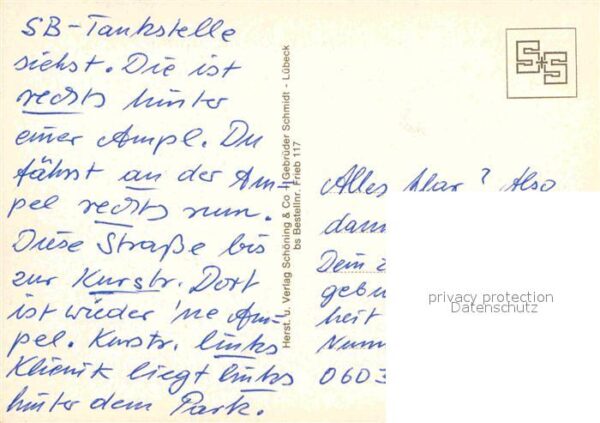 SB-Tankstelle
siehst. Die ist
rechts hinter
einer Ampl. Du
fährst an der Am-
pel rechts rum.
Diese Straße bis
zur Kurstr. Dort
ist wieder 'ne Am-
pel. Kurstr. links
Klienik liegt links
hinter dem Park.
Herst. u. Verlag Schöning & Co + Gebrüder Schmidt - Lübeck
bs Bestellnr. Frieb 117
S+S
Alles klar? Also
dann
Dein
gebu
heit
Numm
0603
privacy protection
Datenschutz